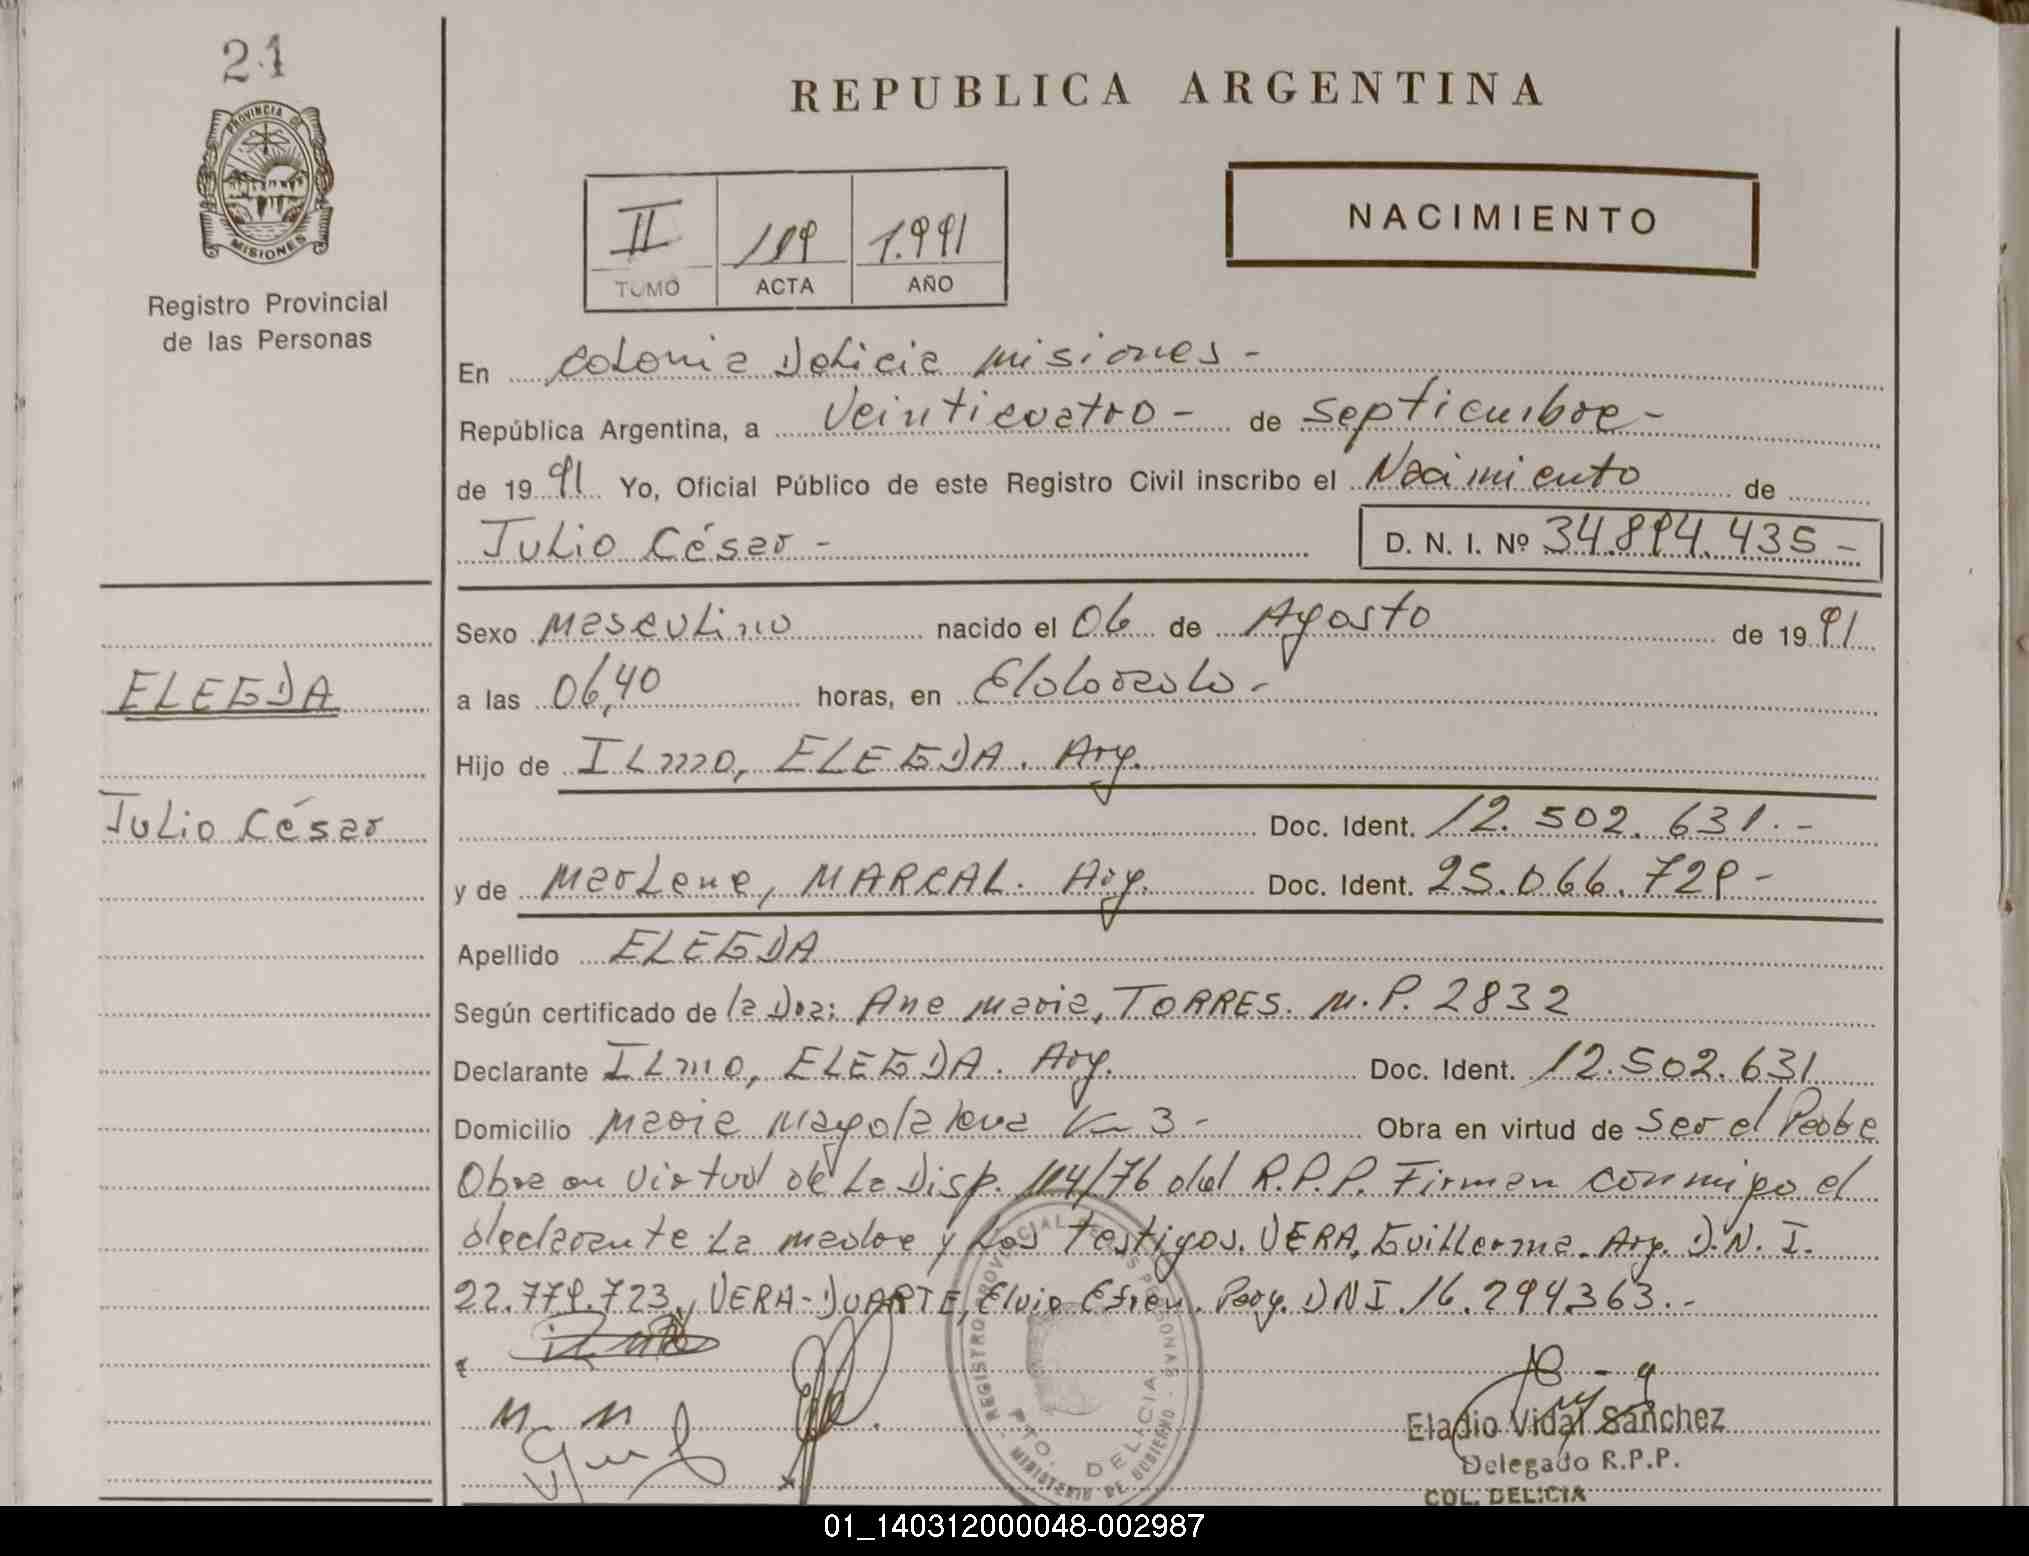 21
PROVINCIA DE
MISIONES
Registro Provincial
de las Personas
REPUBLICA ARGENTINA
II TOMO
119 ACTA
1.991 AÑO
NACIMIENTO
En Colonia Delicia Misiones -
República Argentina, a Veinticuatro - de Septiembre -
de 1991 Yo, Oficial Público de este Registro Civil inscribo el Nacimiento de
Julio César - D. N. I. Nº 34.894.435 -
Sexo Masculino nacido el 06 de Agosto de 1991
ELEGDA
a las 06,40 horas, en Eldorado -
Hijo de ILmo, ELEGDA. Arg.
Julio César
Doc. Ident. 12.502.631.-
y de Marlene, MARCAL. Arg. Doc. Ident. 25.066.729 -
Apellido ELEGDA
Según certificado de la Dra: Ana Maria, TORRES. M.P. 2832
Declarante ILmo, ELEGDA. Arg. Doc. Ident. 12.502.631
Domicilio Maria Magdalena Km 3 - Obra en virtud de Ser el Padre
Obra en Virtud de La Disp. 114/76 del R.P.P. Firman conmigo el
declarante La madre y Los Testigos. VERA, Guillerma. Arg. D.N.I.
22.779.723, VERA-DUARTE, Elvio Efren. Parg. DNI 16.294363.-
M. M
REGISTRO PROVINCIAL DE LAS PERSONAS
PTO. DELICIA
MINISTERIO DE GOBIERNO
Eladio Vidal Sanchez
Delegado R.P.P.
COL. DELICIA
01_140312000048-002987